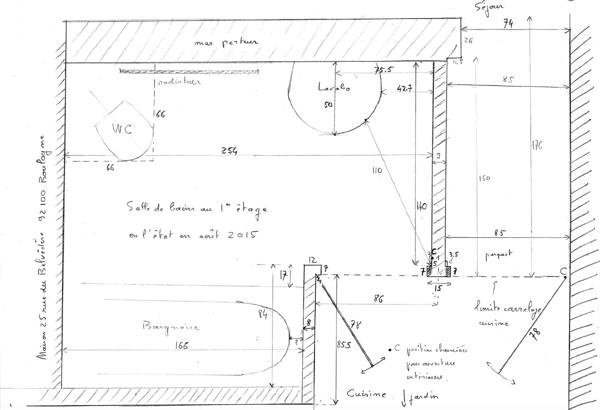 Séjour
74
mur porteur
26
radiateur
75.5
Lavabo
42.7
50
85
176
66
WC
66
254
9
110
140
150
Salle de bains au 1er étage
en l'état en août 2015
Maison 25 rue du Belvédère 92100 Boulogne
85
parquet
C
3.5
7
7
15
C
12
7
17
86
limite carrelage
cuisine
84
Baignoire
8
78
85.5
78
166
C position charnières
pour ouverture
intérieure
Cuisine
jardin